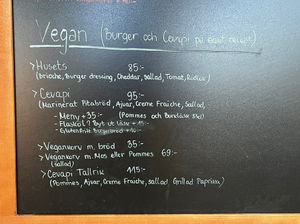 Vegan (Burger och Cevapi på eget recept)
> Husets 85:-
(brioche, Burger dressing, Cheddar, Sallad, Tomat, Rödlök)
> Cevapi 95:-
(Marinerat Pitabröd, Ajvar, Creme Fraiche, Sallad,
- Meny +35:- (Pommes och burkläsk 33cl)
- Flasköl? Byt ut läsk +15:-
- Glutenfritt Burgerbröd +10:-
> Vegankorv m. bröd 35:-
> Vegankorv m. Mos eller Pommes 69:-
(Sallad)
> Cevapi Tallrik 115:-
(Pommes, Ajvar, Creme Fraiche, sallad Grillad Paprika)